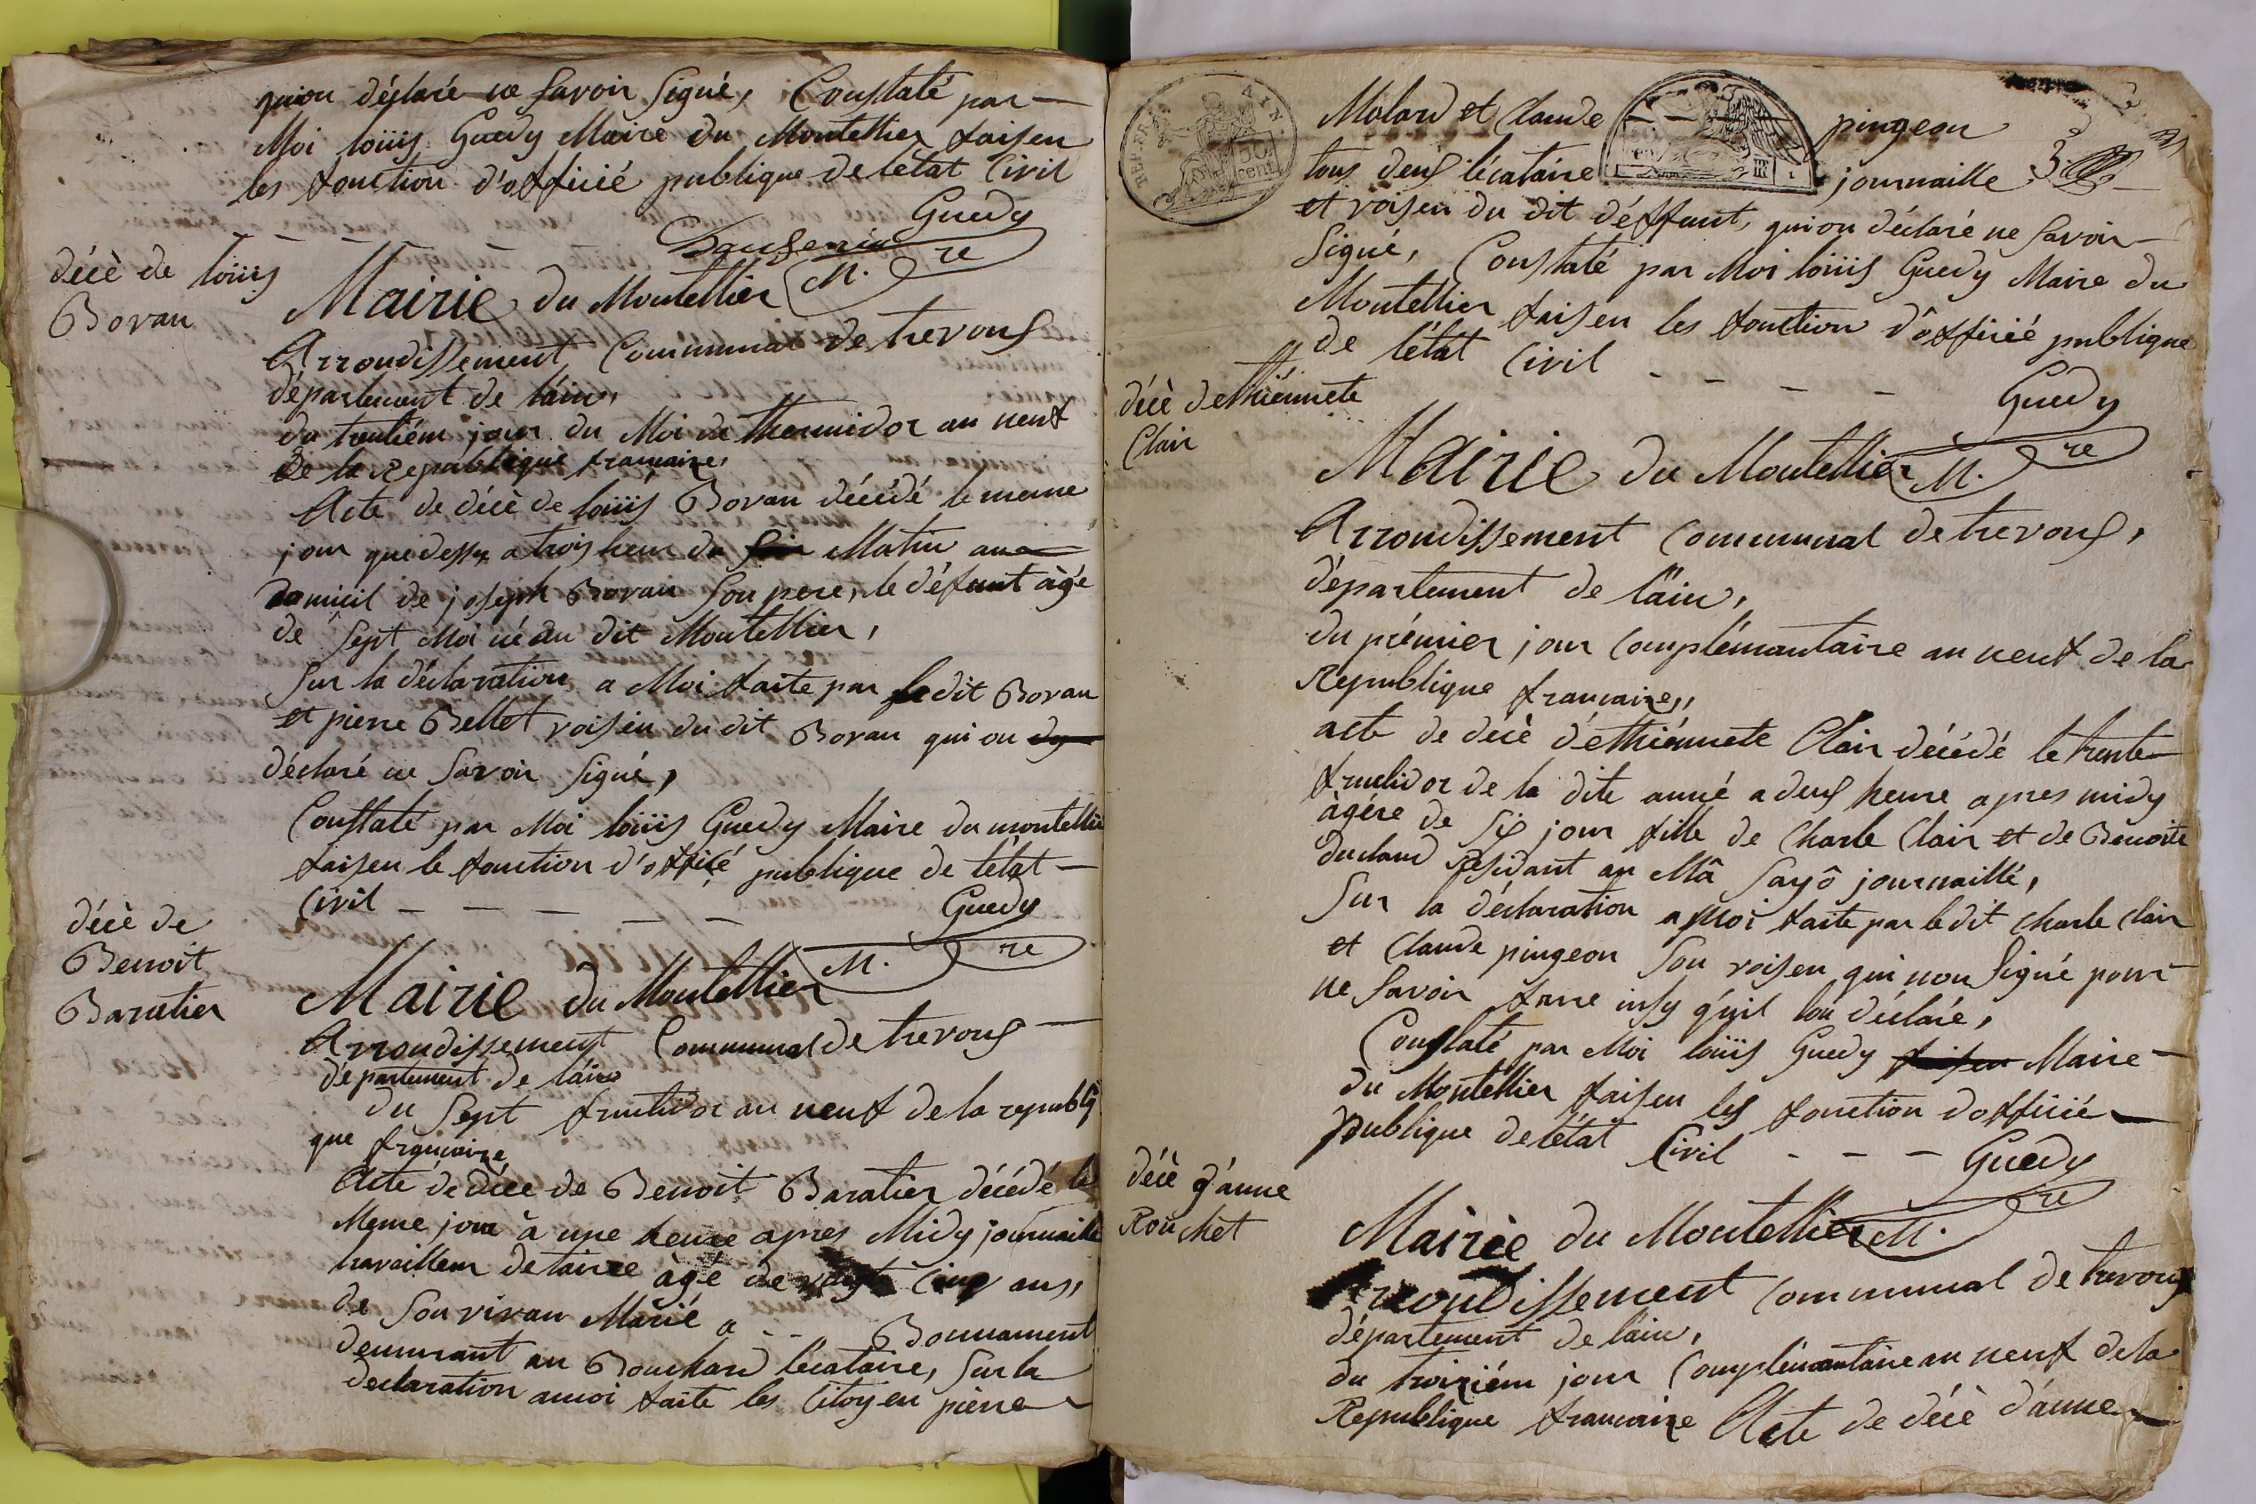 quion déclaré ne Savoir Signé, Constaté par
Moi loüis Guedy Maire du Montellier faisen
les fonction d'officié publique de letat Civil
Guedy
M. re
décè de loüis
Bovan
Mairie du Montellier
Arrondissement Communal de trevous
département de l'ain,
du trentiém jour du Moi de thermidor an neuf
de la Republique francaize,
Acte de décè de loüis Bovan décédé le meme
jour quedessu a trois heur du Matin au
domicil de joseph Bovan Son pere, le défunt àgé
de Sept Moi né du dit Montellier,
Sur la déclaration a Moi faite par ledit Bovan
et pierre Bellet voisen du dit Bovan qui on
déclaré ne Savoir Signé,
Constaté par Moi loüis Guedy Maire du montellier
faisen le fonction d'officié publique de létat
Civil
Guedy
M. re
décè de
Benoit
Baratier
Mairie du Montellier
Arrondissement Communal de trevous
département de láin
du Sept fructidor an neuf de la republi
que francaize
Acte de décè de Benoit Baratier décédé le
Meme jour à une heure apres Midy journaille
travailleur detaire àgé de vingt Cinq ans,
de Son vivan Marié a - - Bonnament
demurant au Bouchard lécataire, Sur la
declaration amoi faite les Citoyen piérre
Molard et Claude pingeon
50
cent
tous deus lécataire journaille
et voisen du dit déffunt, quion déclaré ne Savoir
Signé, Constaté par Moi loüis Guedy Maire du
Montellier faisen les fonction d'officié publique
de létat Civil
Guedy
M. re
décè dethiénnete
Clair
Mairie du Montellier
Arrondissement Communal de trevous,
département de l'ain,
du prémier jour Complémantaire an neuf de la
Republique francaize,,
acte de décè d'éthiénnete Clair décédé le trente
fructidor de la dite anné a deus heure apres midy
àgére de Six jour fille de Charle Clair et de Benoite
duclaud Résidant au Mâ Sayô journaillé,
Sur la déclaration a Moi faite par ledit Charle Clair
et Claude pingeon Son voisen qui non Signé pour
ne Savoir faire insy qu'il lon déclaré,
Constaté par Moi loüis Guedy Maire
du Montellier faisen les fonction dofficié
publique de létat Civil
Guedy
M. re
décè d'ánne
Rouchet
Mairie du Montellier
Arrondissement Communal de trevous
département de lain,
du troiziém jour Complémantaire an neuf de la
Republique francaize Acte de décè d'ánne